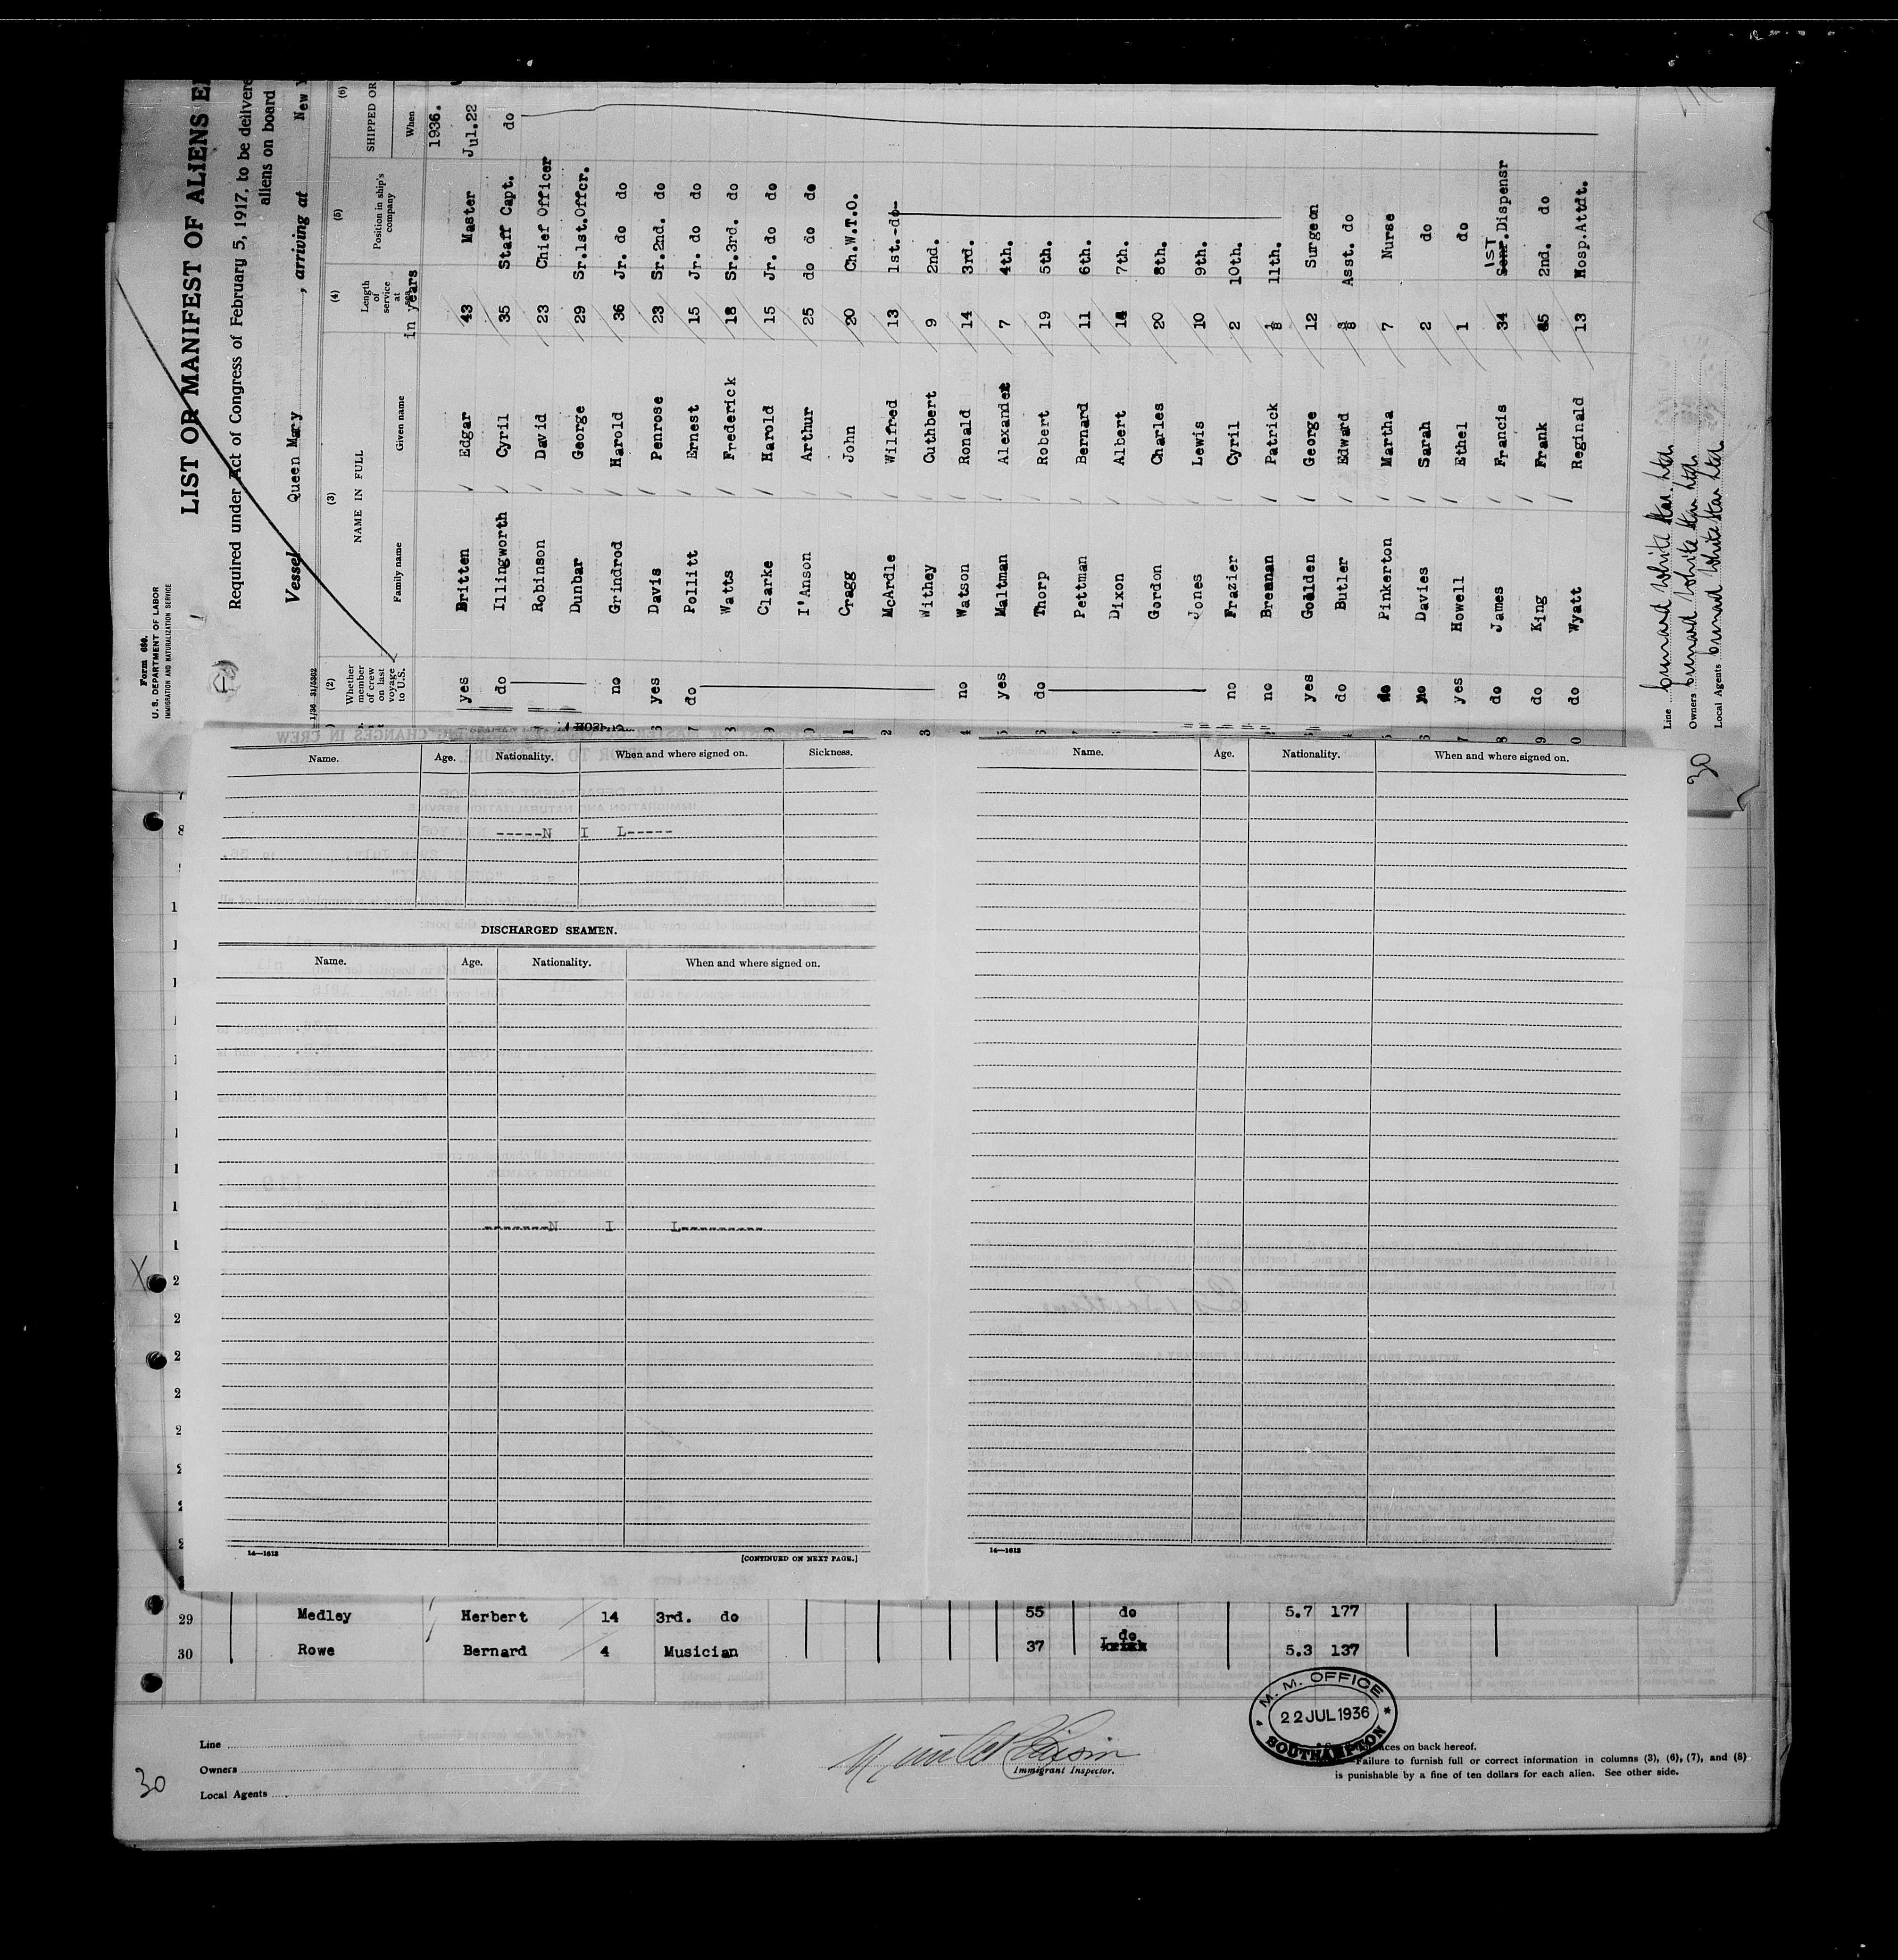 Form 680.
U. S. DEPARTMENT OF LABOR
IMMIGRATION AND NATURALIZATION SERVICE
LIST OR MANIFEST OF ALIENS E
Required under Act of Congress of February 5, 1917, to be delivere
aliens on board
Vessel Queen Mary, arriving at New Y
(2) (3) (4) (5) (6)
Whether member of crew on last voyage to U.S.
NAME IN FULL
Family name Given name
Length of service at sea
in years
Position in ship's company
SHIPPED OR
When
1936.
yes Britten Edgar 43 Master Jul.22
do Illingworth Cyril 35 Staff Capt. do
Robinson David 23 Chief Officer
Dunbar George 29 Sr.1st.Offcr.
no Grindrod Harold 36 Jr. do do
yes Davis Penrose 23 Sr.2nd. do
do Pollitt Ernest 15 Jr. do do
Watts Frederick 18 Sr.3rd. do
Clarke Harold 15 Jr. do do
I'Anson Arthur 25 do do do
Cragg John 20 Ch.W.T.O.
McArdle Wilfred 13 1st.-do-
Withey Cuthbert 9 2nd.
no Watson Ronald 14 3rd.
yes Maltman Alexander 7 4th.
do Thorp Robert 19 5th.
Pettman Bernard 11 6th.
Dixon Albert 7th.
Gordon Charles 20 8th.
Jones Lewis 10 9th.
no Frazier Cyril 2 10th.
no Brennan Patrick 11th.
yes Goolden George 12 Surgeon
do Butler Edward Asst. do
Pinkerton Martha 7 Nurse
no Davies Sarah 2 do
yes Howell Ethel 1 do
do James Francis 34 1ST Dispensr
do King Frank 2nd. do
do Wyatt Reginald 13 Hosp.Attdt.
Line Cunard White Star Ltd.
Owners Cunard White Star Ltd.
Local Agents Cunard White Star Ltd.
30
Name. Age. Nationality. When and where signed on. Sickness.
-----N I L-----
DISCHARGED SEAMEN.
Name. Age. Nationality. When and where signed on.
-------N I L---------
14—1613
[CONTINUED ON NEXT PAGE.]
Name. Age. Nationality. When and where signed on.
14—1613
29 Medley Herbert 14 3rd. do 55 do 5.7 177
30 Rowe Bernard 4 Musician 37 do 5.3 137
M. M. OFFICE
22 JUL 1936
SOUTHAMPTON
Line
Owners
Local Agents
30
Immigrant Inspector.
on back hereof.
Failure to furnish full or correct information in columns (3), (6), (7), and (8)
is punishable by a fine of ten dollars for each alien. See other side.